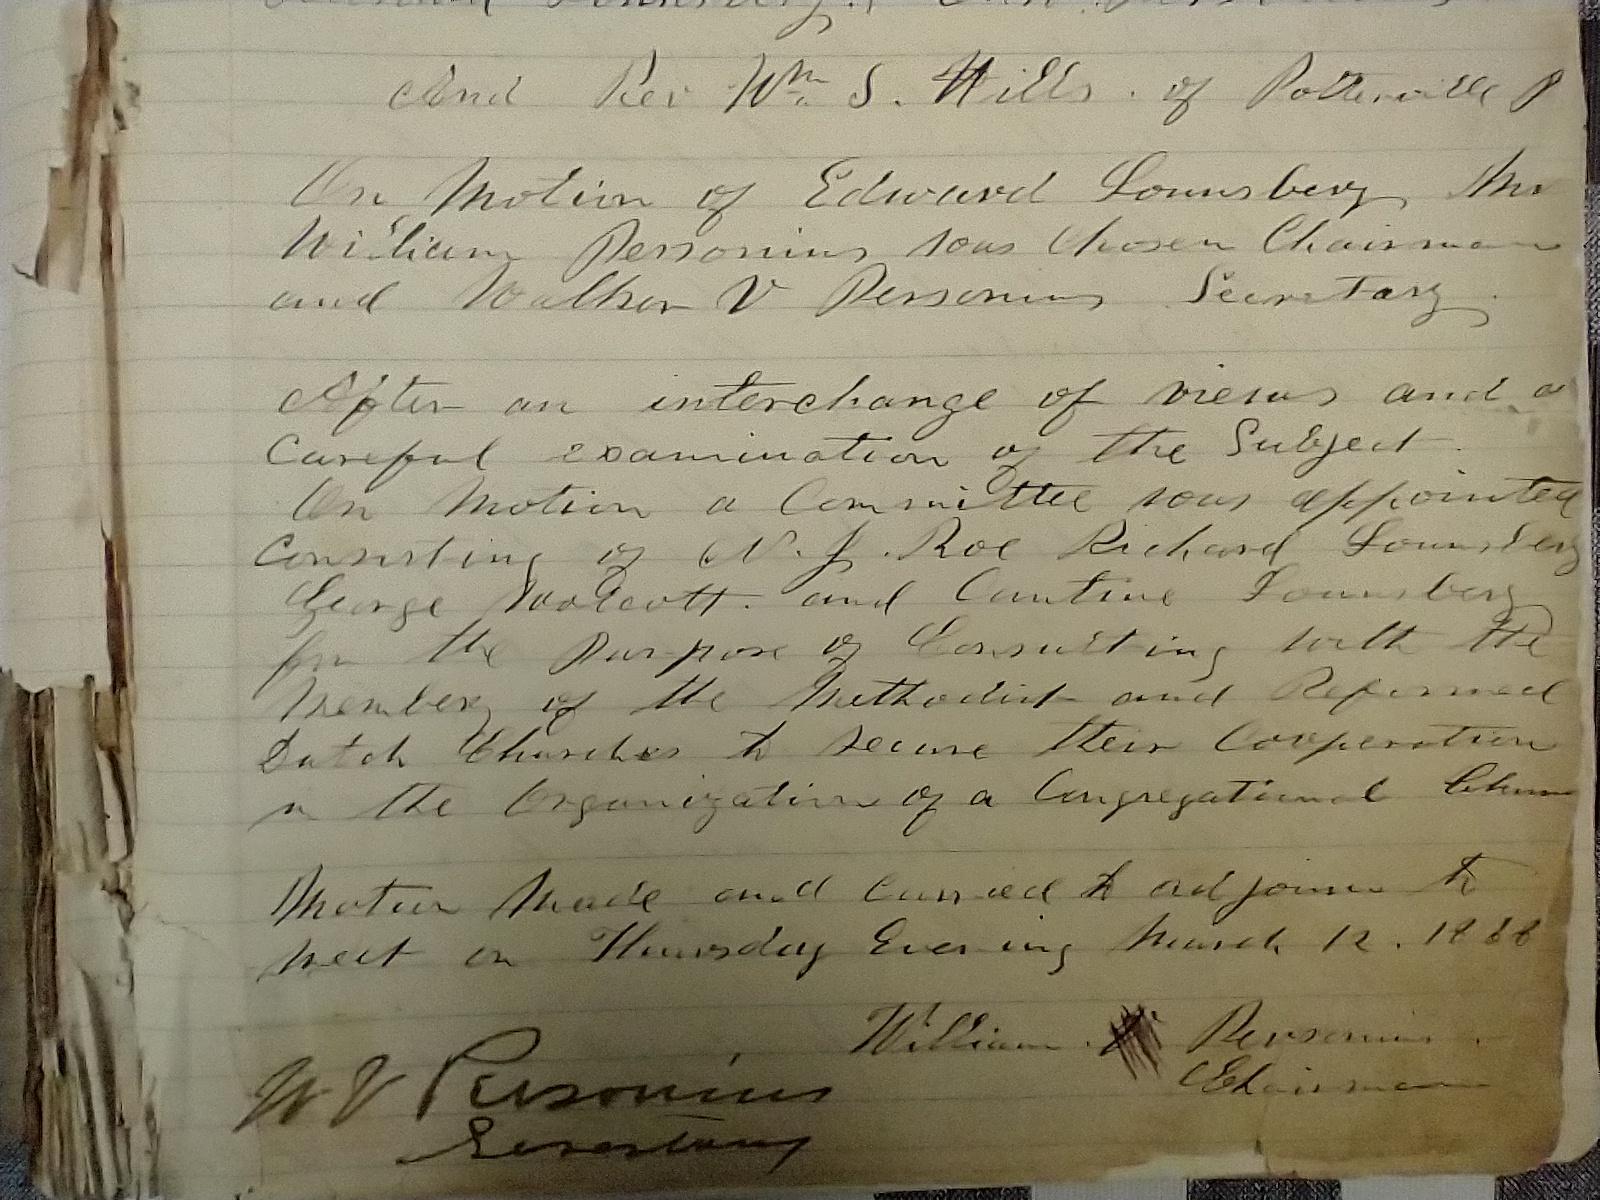 And Rev Wm. S. Wills. of Potterville P
On Motion of Edward Lounsbery, Mr
William Personius was Chosen Chairman
and Walker V Personius Secretary.
After an interchange of views and a
Careful examination of the Subject.
On Motion a Committee was appointed
Consisting of N. J. Roe Richard Lounsbery
George Wolcott. and Cantine Lounsbery
for the Purpose of Consulting with the
Members of the Methodist and Reformed
Dutch Churches to secure their Cooperation
in the Organization of a Congregational
Motion Made and Carried to adjourn to
meet on Thursday Evening March 12. 1888
William. Personius.
Chairman
W V Personius
Secretary